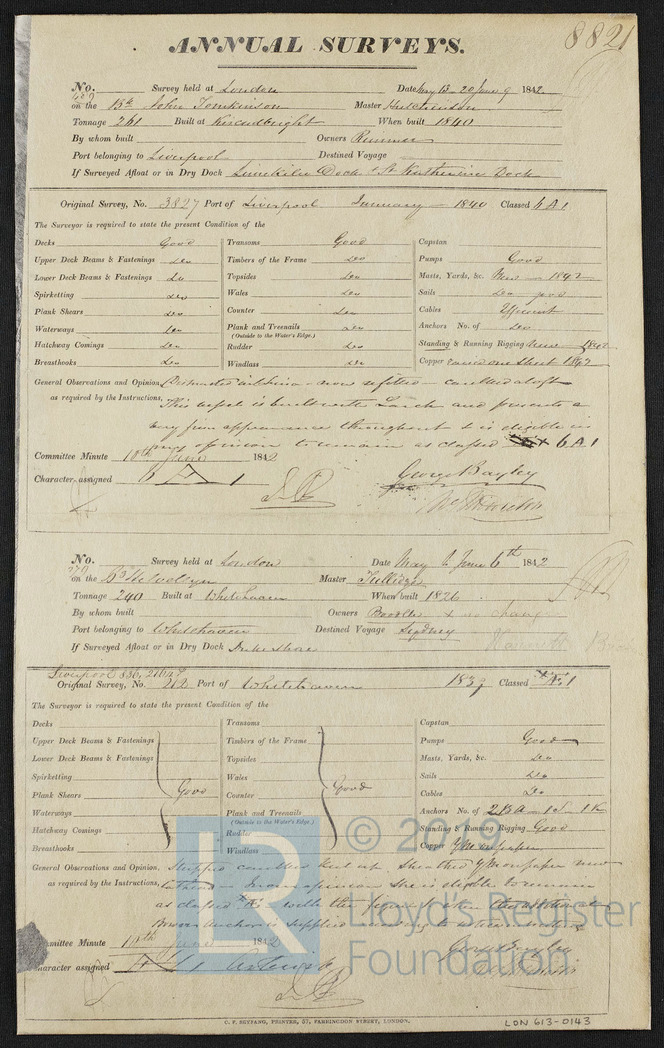 8821
ANNUAL SURVEYS.
No. Survey held at London Date May 13 - 20 June 9 1842
on the Bk John Tomkinson Master Hutchinson
Tonnage 261 Built at Kircudbright When built 1840
By whom built Owners Rimmer
Port belonging to Liverpool Destined Voyage
If Surveyed Afloat or in Dry Dock Limekiln Dock & St Katherine Dock
Original Survey, No. 3827 Port of Liverpool January 1840 Classed 6 A 1
The Surveyor is required to state the present Condition of the
Decks Good
Upper Deck Beams & Fastenings Do
Lower Deck Beams & Fastenings Do
Spirketting Do
Plank Shears Do
Waterways Do
Hatchway Comings Do
Breasthooks Do
Transoms Good
Timbers of the Frame Do
Topsides Do
Wales Do
Counter Do
Plank and Treenails Do
(Outside to the Water's Edge.)
Rudder Do
Windlass Do
Capstan
Pumps Good
Masts, Yards, &c. New 1842
Sails Do good
Cables Efficient
Anchors No. of Do
Standing & Running Rigging New 1842
Copper one sheet 1842
General Observations and Opinion, Dismasted in China - now refitted - caulked aloft
as required by the Instructions, This vessel is built with Larch and presents a
very firm appearance throughout & is eligible in
my opinion to remain as classed 6 A 1
Committee Minute 10th June 1842
Character assigned 6 A 1
George Bayley
No. Survey held at London Date May & June 6th 1842
on the Bg Helvellyn Master Tullidge
Tonnage 240 Built at Whitehaven When built 1826
By whom built Owners
Port belonging to Whitehaven Destined Voyage Sydney
If Surveyed Afloat or in Dry Dock
Liverpool
Original Survey, No. 212 Port of Whitehaven 1837 Classed Æ 1
The Surveyor is required to state the present Condition of the
Decks
Upper Deck Beams & Fastenings
Lower Deck Beams & Fastenings
Spirketting
Plank Shears Good
Waterways
Hatchway Comings
Breasthooks
Transoms
Timbers of the Frame
Topsides
Wales
Counter Good
Plank and Treenails
(Outside to the Water's Edge.)
Rudder
Windlass
Capstan
Pumps Good
Masts, Yards, &c. Do
Sails Do
Cables Do
Anchors No. of 2 BA 1 S 1 K
Standing & Running Rigging Good
Copper YM on paper
General Observations and Opinion, Stripped caulked Sheathed YM on paper new
as required by the Instructions, in my opinion She is eligible to remain
as classed Æ 1 with the
anchor is supplied
Committee Minute 10th June 1842
Character assigned Æ 1
Geo Bayley
© 2019
LR
Lloyd's Register
Foundation
C. F. SEYFANG, PRINTER, 57, FARRINGDON STREET, LONDON.
LON 613-0143